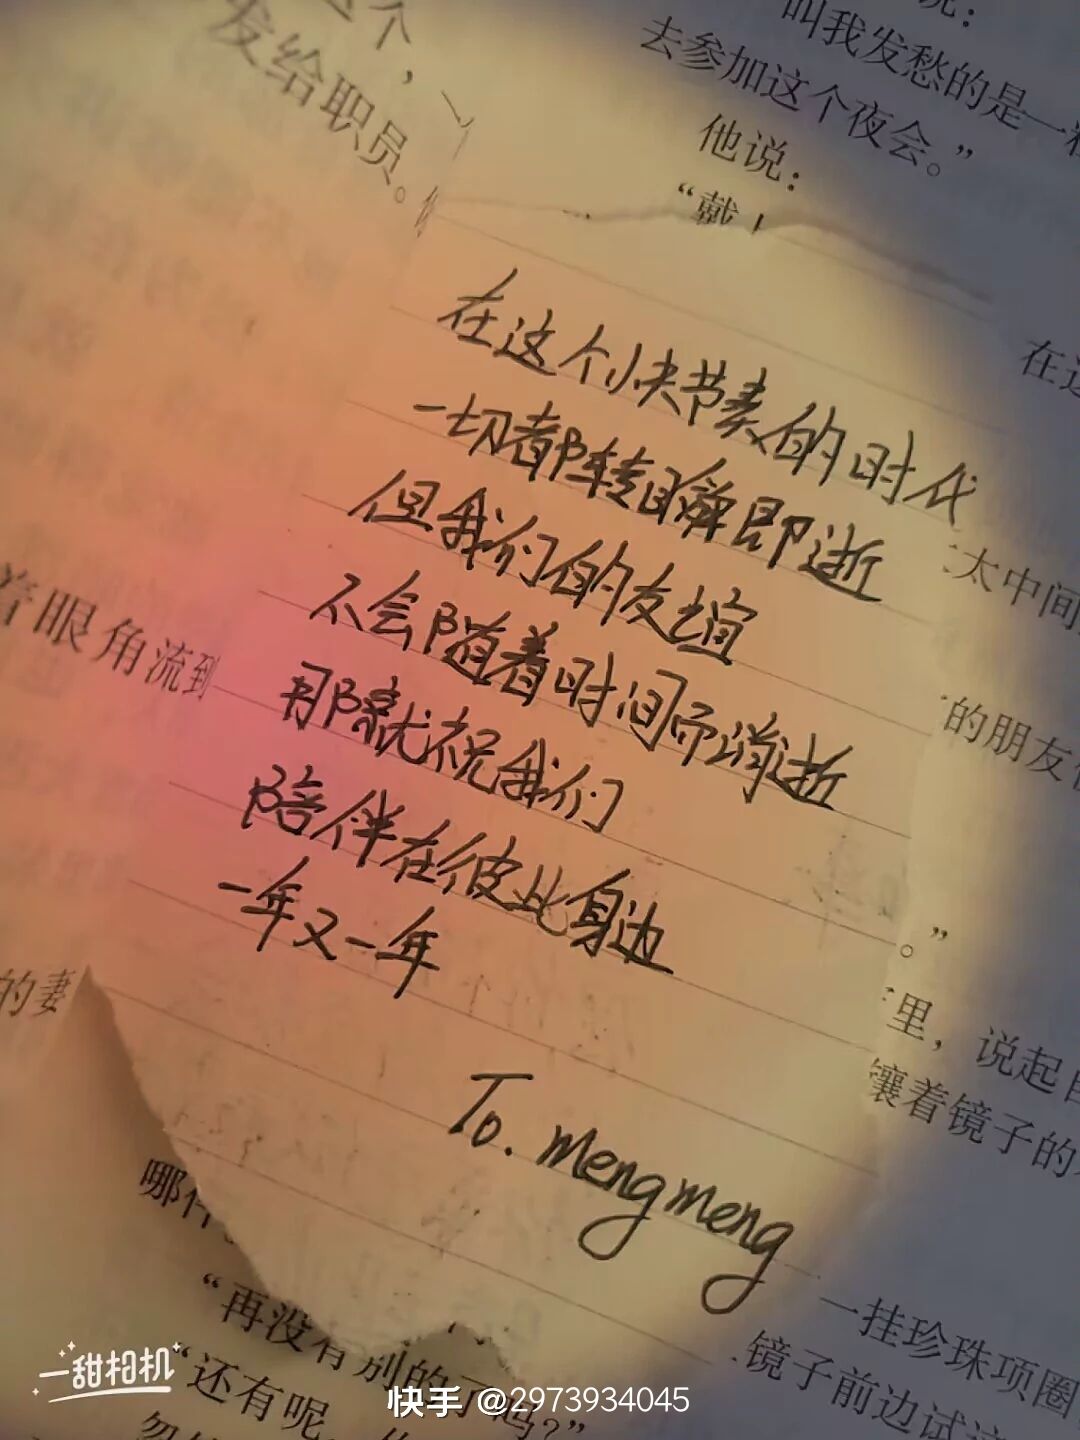 这个，
发给职员。
说：
叫我发愁的是一
去参加这个夜会。”
他说：
“戴上
在这个快节奏的时代
一切都转瞬即逝
但我们的友谊
不会随着时间而消逝
那就祝我们
陪伴在彼此身边
一年又一年
To. mengmeng
在这
太中间
着眼角流到
的朋友
。”
里，说起自
镶着镜子的
的妻
哪件
“再没有别的了吗？”
“还有呢，
一挂珍珠项圈
镜子前边试这
一甜相机
快手 @2973934045